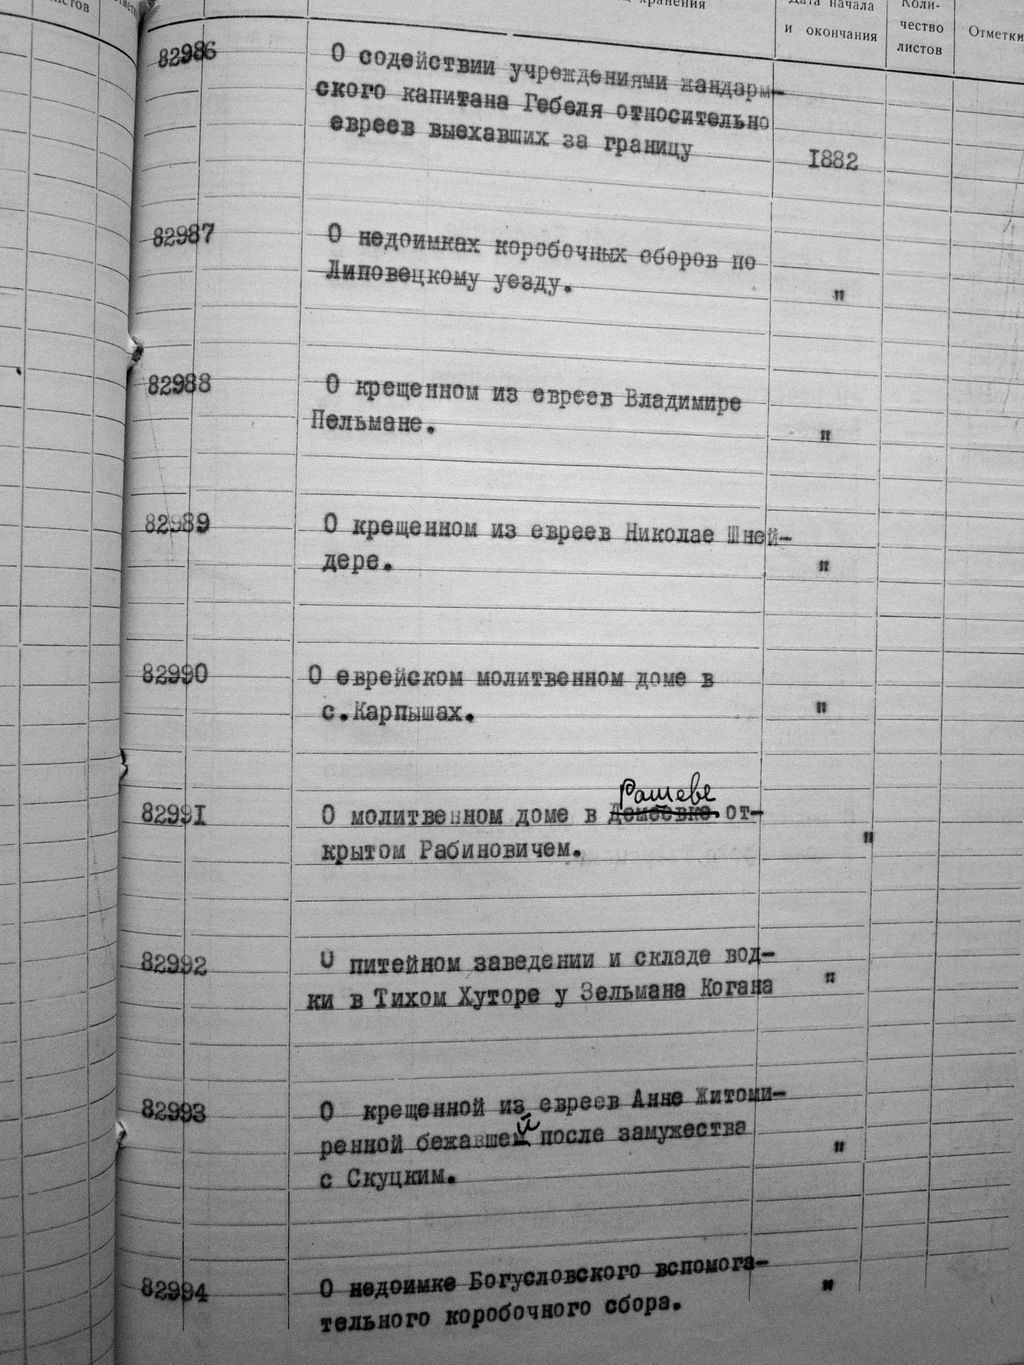 истов
хранения
Дата начала
и окончания
Коли-
чество
листов
Отметки
82986 О содействии учреждениями жандарм-
ского капитана Гебеля относительно
евреев выехавших за границу 1882
82987 О недоимках коробочных сборов по
Липовецкому уезду. "
82988 О крещенном из евреев Владимире
Пельмане. "
82989 О крещенном из евреев Николае Шней-
дере. "
82990 О еврейском молитвенном доме в
с.Карпышах. "
Рашеве
82991 О молитвенном доме в от-
крытом Рабиновичем. "
82992 О питейном заведении и складе вод-
ки в Тихом Хуторе у Зельмана Когана "
82993 О крещенной из евреев Анне Житоми-
ренной бежавшей после замужества "
с Скуцким.
82994 О недоимке Богусловского вспомога- "
тельного коробочного сбора.